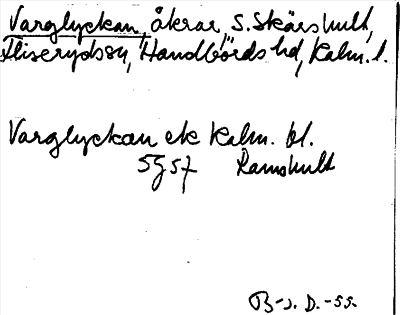 Varglyckan, åkrar, S. Skärshult,
Fliserydssn, Handbörds hd, Kalm. l.
Varglyckan ek Kalm. bl.
5g5f Ramshult
B-s. D. -55.